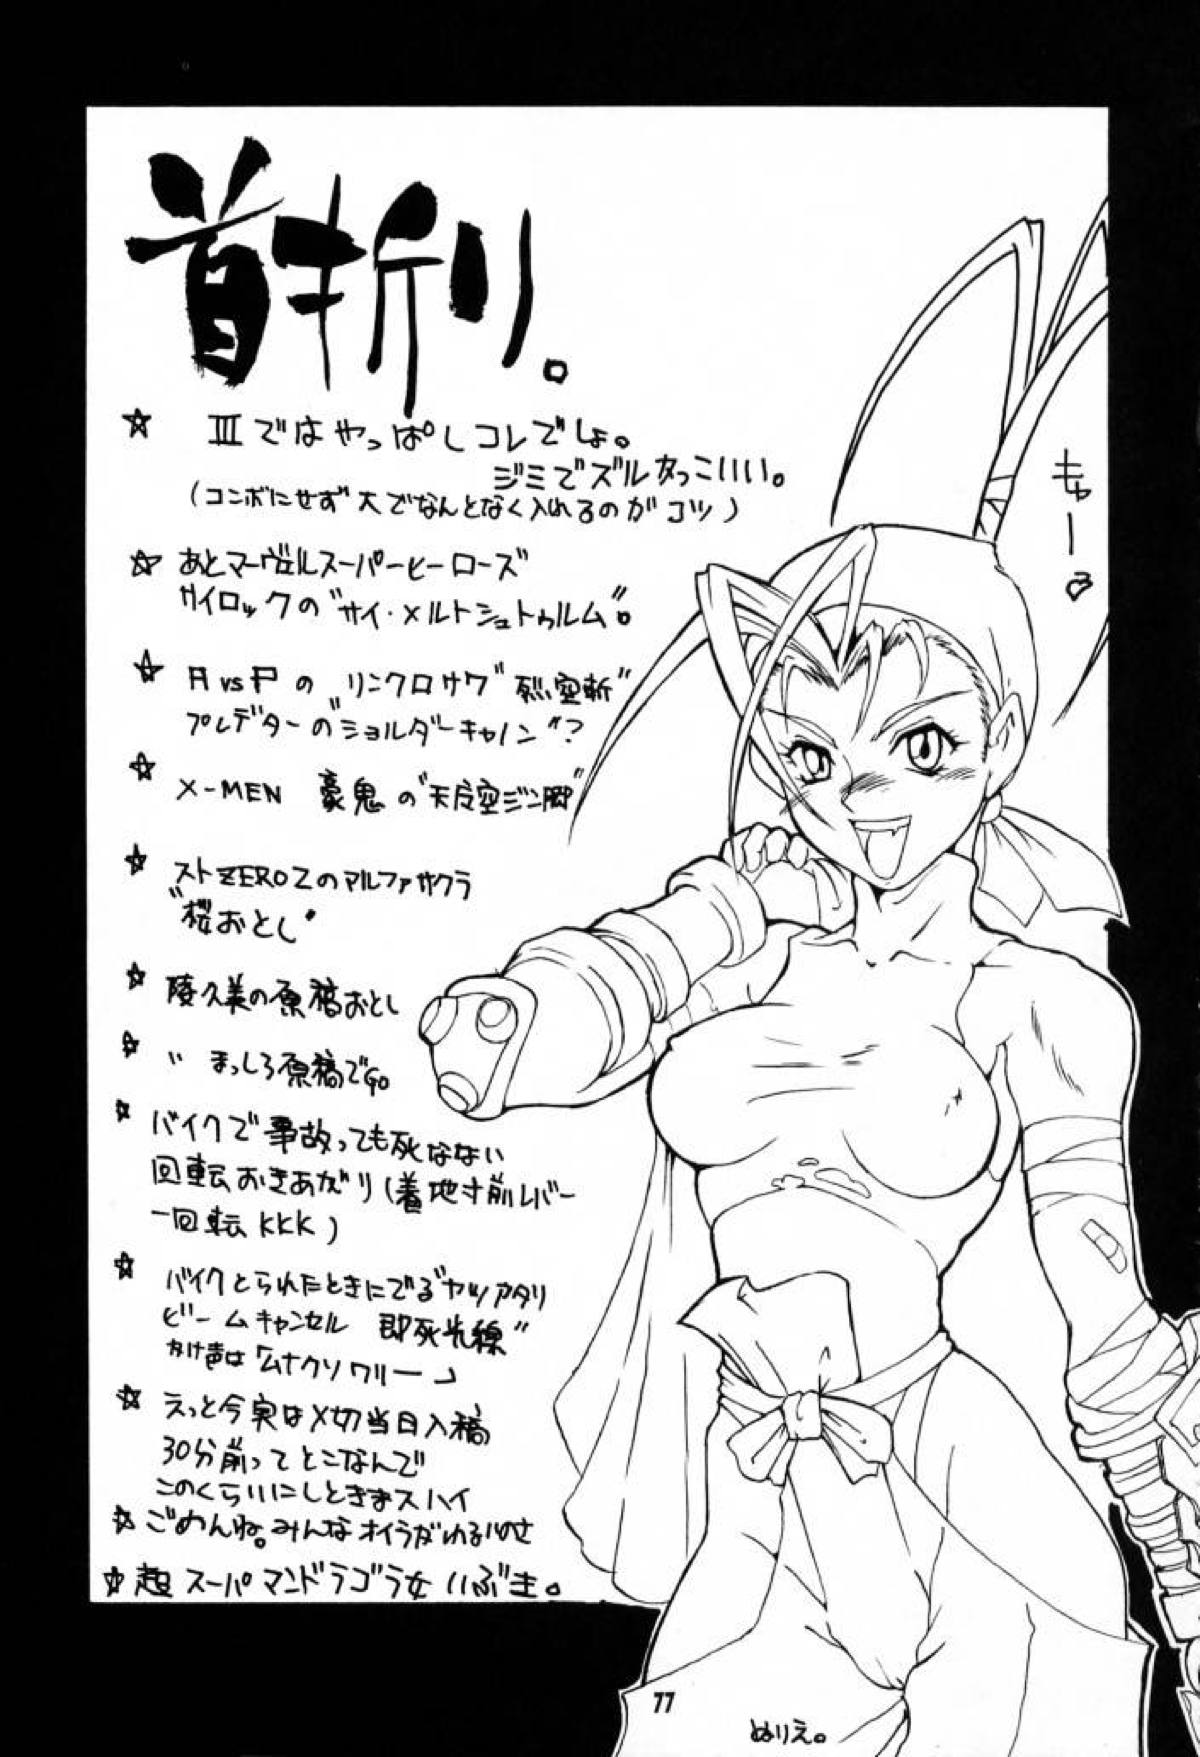 首折り。
☆ Ⅲではやっぱしコレでしょ。
ジミでズルかっこいい。
(コンボにせず大でなんとなく入れるのがコツ)
☆ あとマーヴェルスーパーヒーローズ
サイロックの"サイ・メルトシュトゥルム"。
☆ AvsPの"リンクロサワ"烈空斬"
プレデターの"ショルダーキャノン"?
☆ X-MEN 豪鬼の"天空ジン脚"
☆ ストZERO2のマルファサクラ
"桜おとし"
☆ 陵久美の原稿おとし
☆ 〃 まっしろ原稿でGo
☆ バイクで事故っても死なない
回転おきあがり(着地寸前レバー
一回転KKK)
☆ バイクとられたときにでる"ヤツアタリ
ビームキャンセル 即死光線"
かけ声は「ムナクソワリー」
☆ えっと今実は〆切当日入稿
30分前ってとこなんで
このくらいにしときまスハイ
☆ ごめんね。みんなオイラがわるいのさ
☆ 超スーパマンドラゴラ女いぶき。
キャー♡
77
ぬりえ。